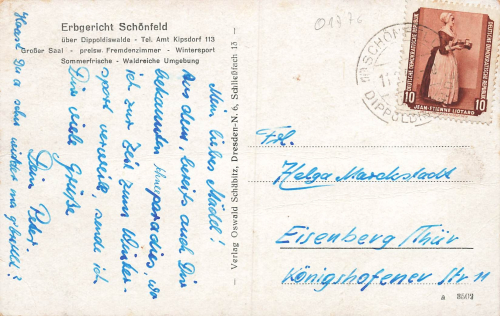 Erbgericht Schönfeld
über Dippoldiswalde - Tel. Amt Kipsdorf 113
Großer Saal - preisw. Fremdenzimmer - Wintersport
Sommerfrische - Waldreiche Umgebung
01776
Mein liebes Mädel!
Aus dem, bereits auch Dir
bekannten Winterparadies, wo
ich zur Zeit zum Winter-
sport verweile, sende ich
Dir viele Grüße
Dein Peter.
Hast Du a schon
Verlag Oswald Schäbitz, Dresden-N. 6, Schließfach 15
SCHÖNF
DIPPOLDIS
DEUTSCHE DEMOKRATISCHE REPUBLIK
10 10
JEAN-ETIENNE LIOTARD
Frl.
Helga Marckstadt
Eisenberg/Thür
Königshofener Str 11